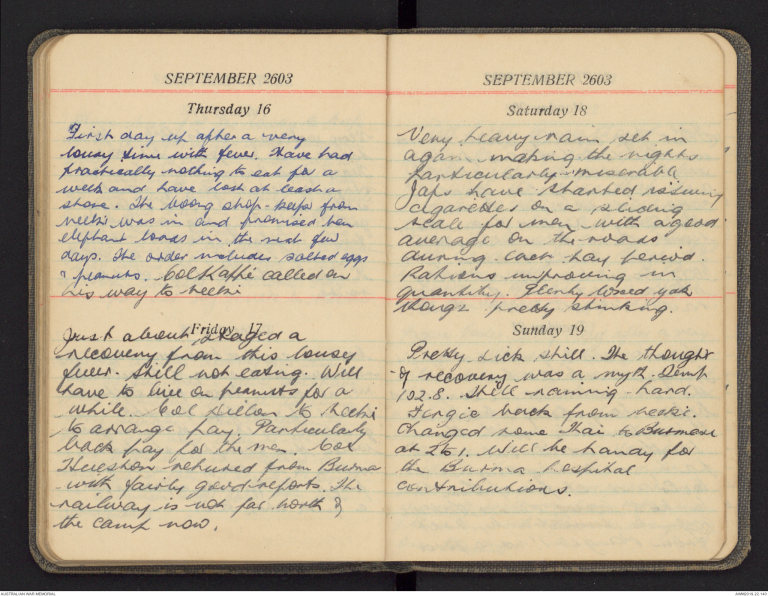 SEPTEMBER 2603
Thursday 16
First day up after a very
lousy time with fever. Have had
practically nothing to eat for a
week and have lost at least a
stone. The boong shop-keeper from
neekie was in and promised ten
elephant loads in the next few
days. The order includes salted eggs
& peanuts. Col Kappé called on
his way to neekie
Friday 17
Just about staged a
recovery from this lousy
fever. Still not eating. Will
have to live on peanuts for a
while. Col Dillon to neekie
to arrange pay. Particularly
back pay for the men. Col
Hueston returned from Burma
with fairly good reports. The
railway is not far north of
the camp now.
SEPTEMBER 2603
Saturday 18
Very heavy rain set in
again making the nights
particularly miserable.
Japs have started issuing
cigarettes on a sliding
scale for men with a good
average on the roads
during each pay period.
Rations improving in
quantity. Plenty dried yak
though pretty stinking.
Sunday 19
Pretty sick still. The thought
of recovery was a myth. Temp
102.8. Still raining hard.
Fergie back from neekie.
Changed some Thai to Burmese
at 2 to 1. Will be handy for
the Burma hospital
contributions.
AUSTRALIAN WAR MEMORIAL